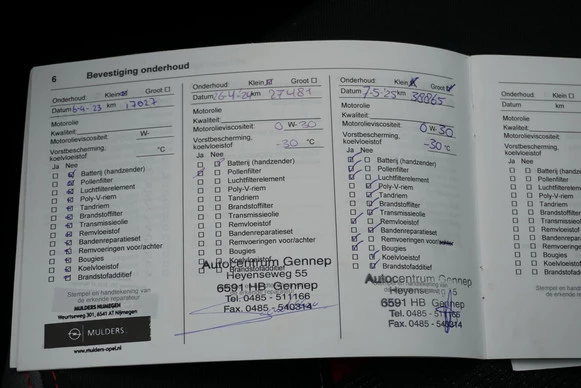 6 Bevestiging onderhoud
Onderhoud: Klein Groot
Datum 6-4-23 km 17027
Motorolie
Kwaliteit:
Motorolieviscositeit: W-
Vorstbescherming,
koelvloeistof °C
Ja Nee
Batterij (handzender)
Pollenfilter
Luchtfilterelement
Poly-V-riem
Tandriem
Brandstoffilter
Transmissieolie
Remvloeistof
Bandenreparatieset
Remvoeringen voor/achter
Bougies
Koelvloeistof
Brandstofadditief
Stempel en handtekening van
de erkende reparateur
MULDERS NIJMEGEN
Weurtseweg 301, 6541 AT Nijmegen
MULDERS.
www.mulders-opel.nl
Onderhoud: Klein Groot
Datum 26-4-24 km 27481
Motorolie
Kwaliteit:
Motorolieviscositeit: 0 W-30
Vorstbescherming,
koelvloeistof -30 °C
Ja Nee
Batterij (handzender)
Pollenfilter
Luchtfilterelement
Poly-V-riem
Tandriem
Brandstoffilter
Transmissieolie
Remvloeistof
Bandenreparatieset
Remvoeringen voor/achter
Bougies
Koelvloeistof
Brandstofadditief
Autocentrum Gennep
Heyenseweg 55
6591 HB Gennep
Tel. 0485 - 511166
Fax. 0485 - 540314
Onderhoud: Klein Groot
Datum 7-5-25 km 38065
Motorolie
Kwaliteit:
Motorolieviscositeit: 0 W-30
Vorstbescherming,
koelvloeistof -30 °C
Ja Nee
Batterij (handzender)
Pollenfilter
Luchtfilterelement
Poly-V-riem
Tandriem
Brandstoffilter
Transmissieolie
Remvloeistof
Bandenreparatieset
Remvoeringen voor/achter
Bougies
Koelvloeistof
Brandstofadditief
Autocentrum Gennep
Heyenseweg 55
6591 HB Gennep
Tel. 0485 - 511166
Fax. 0485 - 540314
Onderhoud:
Datum km
Motorolie
Kwaliteit:
Motorolieviscositeit:
Vorstbescherming,
koelvloeistof
Ja Nee